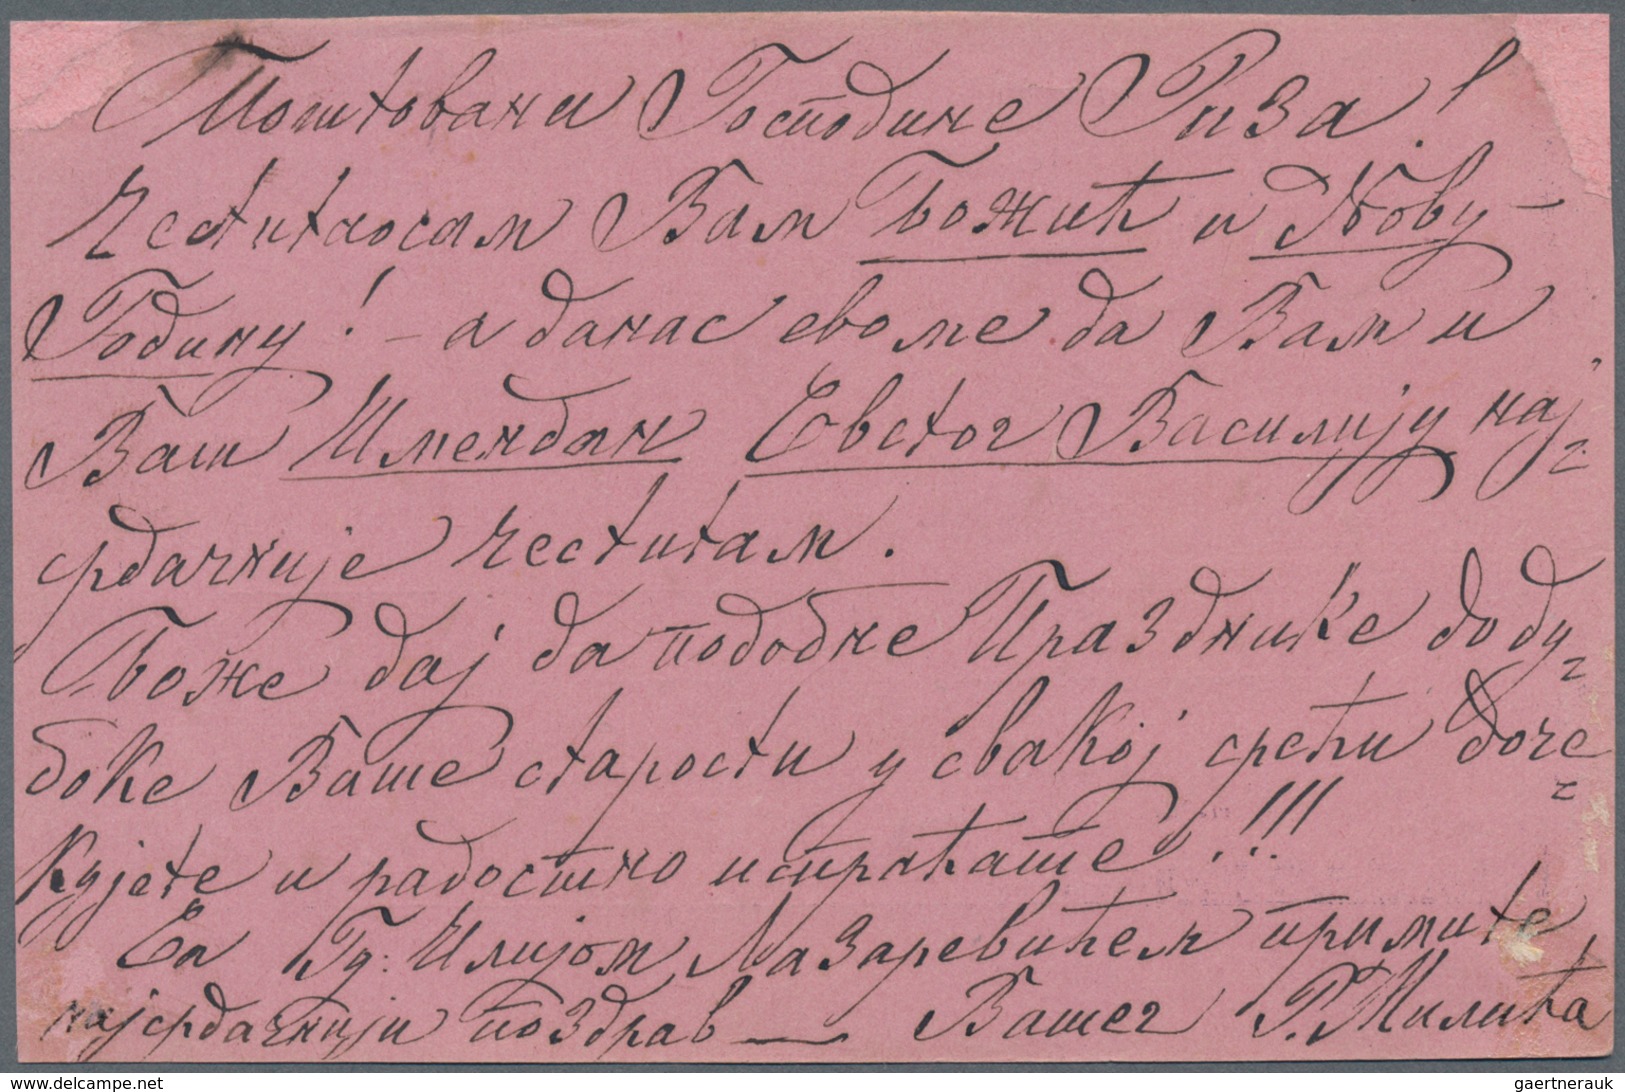 Поштовани Господине Риза!
Честитаосам Вам Божић и Нову-
Годину! - а данас евоме да Вам и
Ваш Имендан Светог Василију нај=
срдачније честитам.
Боже дај да подобне Празднике до ду=
боке Ваше старости у свакој срећи доче=
кујете и радостно испраћате!!!
Са Гд: Илијом Лазаревићем примите
најсрдачнији поздрав — Вашег Р. Милића
gaertnerauk © delcampe.net